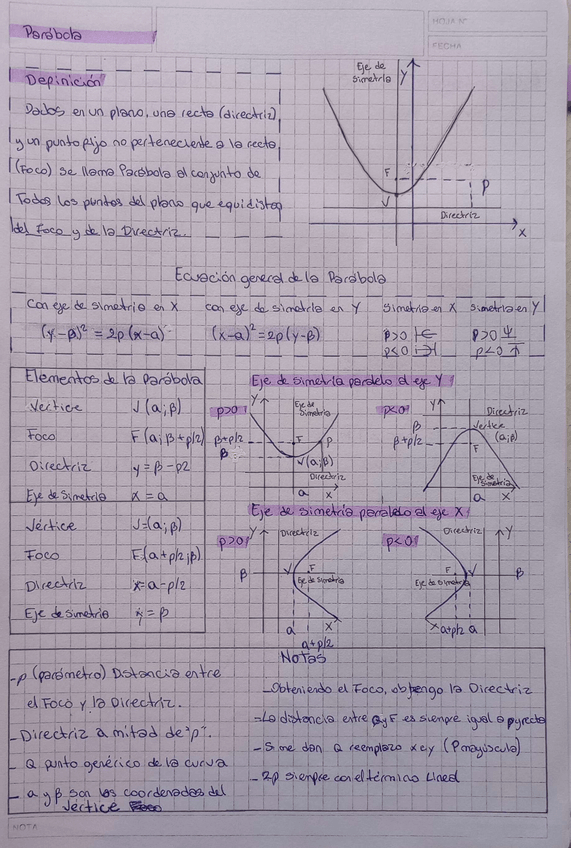 Parábola
HOJA N°
FECHA
Definición
Dados en un plano, una recta (directriz)
y un punto fijo no perteneciente a la recta,
(Foco) se llama Parábola al conjunto de
Todos los puntos del plano que equidistan
del Foco y de la Directriz.
Eje de
Simetría
Y
F
P
V
Directriz
X
Ecuación general de la Parábola
Con eje de simetría en X
(y-β)² = 2p(x-a)
con eje de simetría en Y
(x-a)² = 2p(y-β)
Simetría en X
p>0
p<0
Simetría en Y
p>0
p<0
Elementos de la Parábola
Vértice V(a;β)
Foco F(a;β+p/2)
Directriz y=β-p2
Eje de Simetría x=a
Vértice V=(a;β)
Foco F(a+p/2;β)
Directriz x=a-p/2
Eje de Simetría y=β
Eje de simetría paralelo al eje Y
p>0
Y
Eje de
Simetría
β+p/2
F
P
β
V(a;β)
Directriz
a
X
p<0
Y
Directriz
β
Vértice
(a;β)
β+p/2
F
Eje de
Simetría
a
X
Eje de simetría paralelo al eje X
p>0
Y
Directriz
β
V
F
Eje de Simetría
a
X
a+p/2
p<0
Directriz
Y
F
V
β
Eje de Simetría
X
a+p/2
a
Notas
-p (parámetro) Distancia entre
el Foco y la Directriz.
-Directriz a mitad de "p".
- Q punto genérico de la curva
- a y β son las coordenadas del
Vértice
-Obteniendo el Foco, obtengo la Directriz
-La distancia entre Q y F es siempre igual a p y recta
-Si me dan Q reemplazo x e y (P mayúscula)
-2p siempre con el término Lineal
NOTA